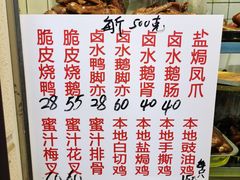 斤 500克
脆皮烧鸭 28
脆皮烧鹅 55
卤水鸭脚亦 28
卤水鹅脚亦 60
卤水鹅肾 40
卤水鹅肠 40
盐焗凤爪
蜜汁梅叉
蜜汁花叉
蜜汁排骨
本地白切鸡
本地盐焗鸡
本地手撕鸡
本地豉油鸡